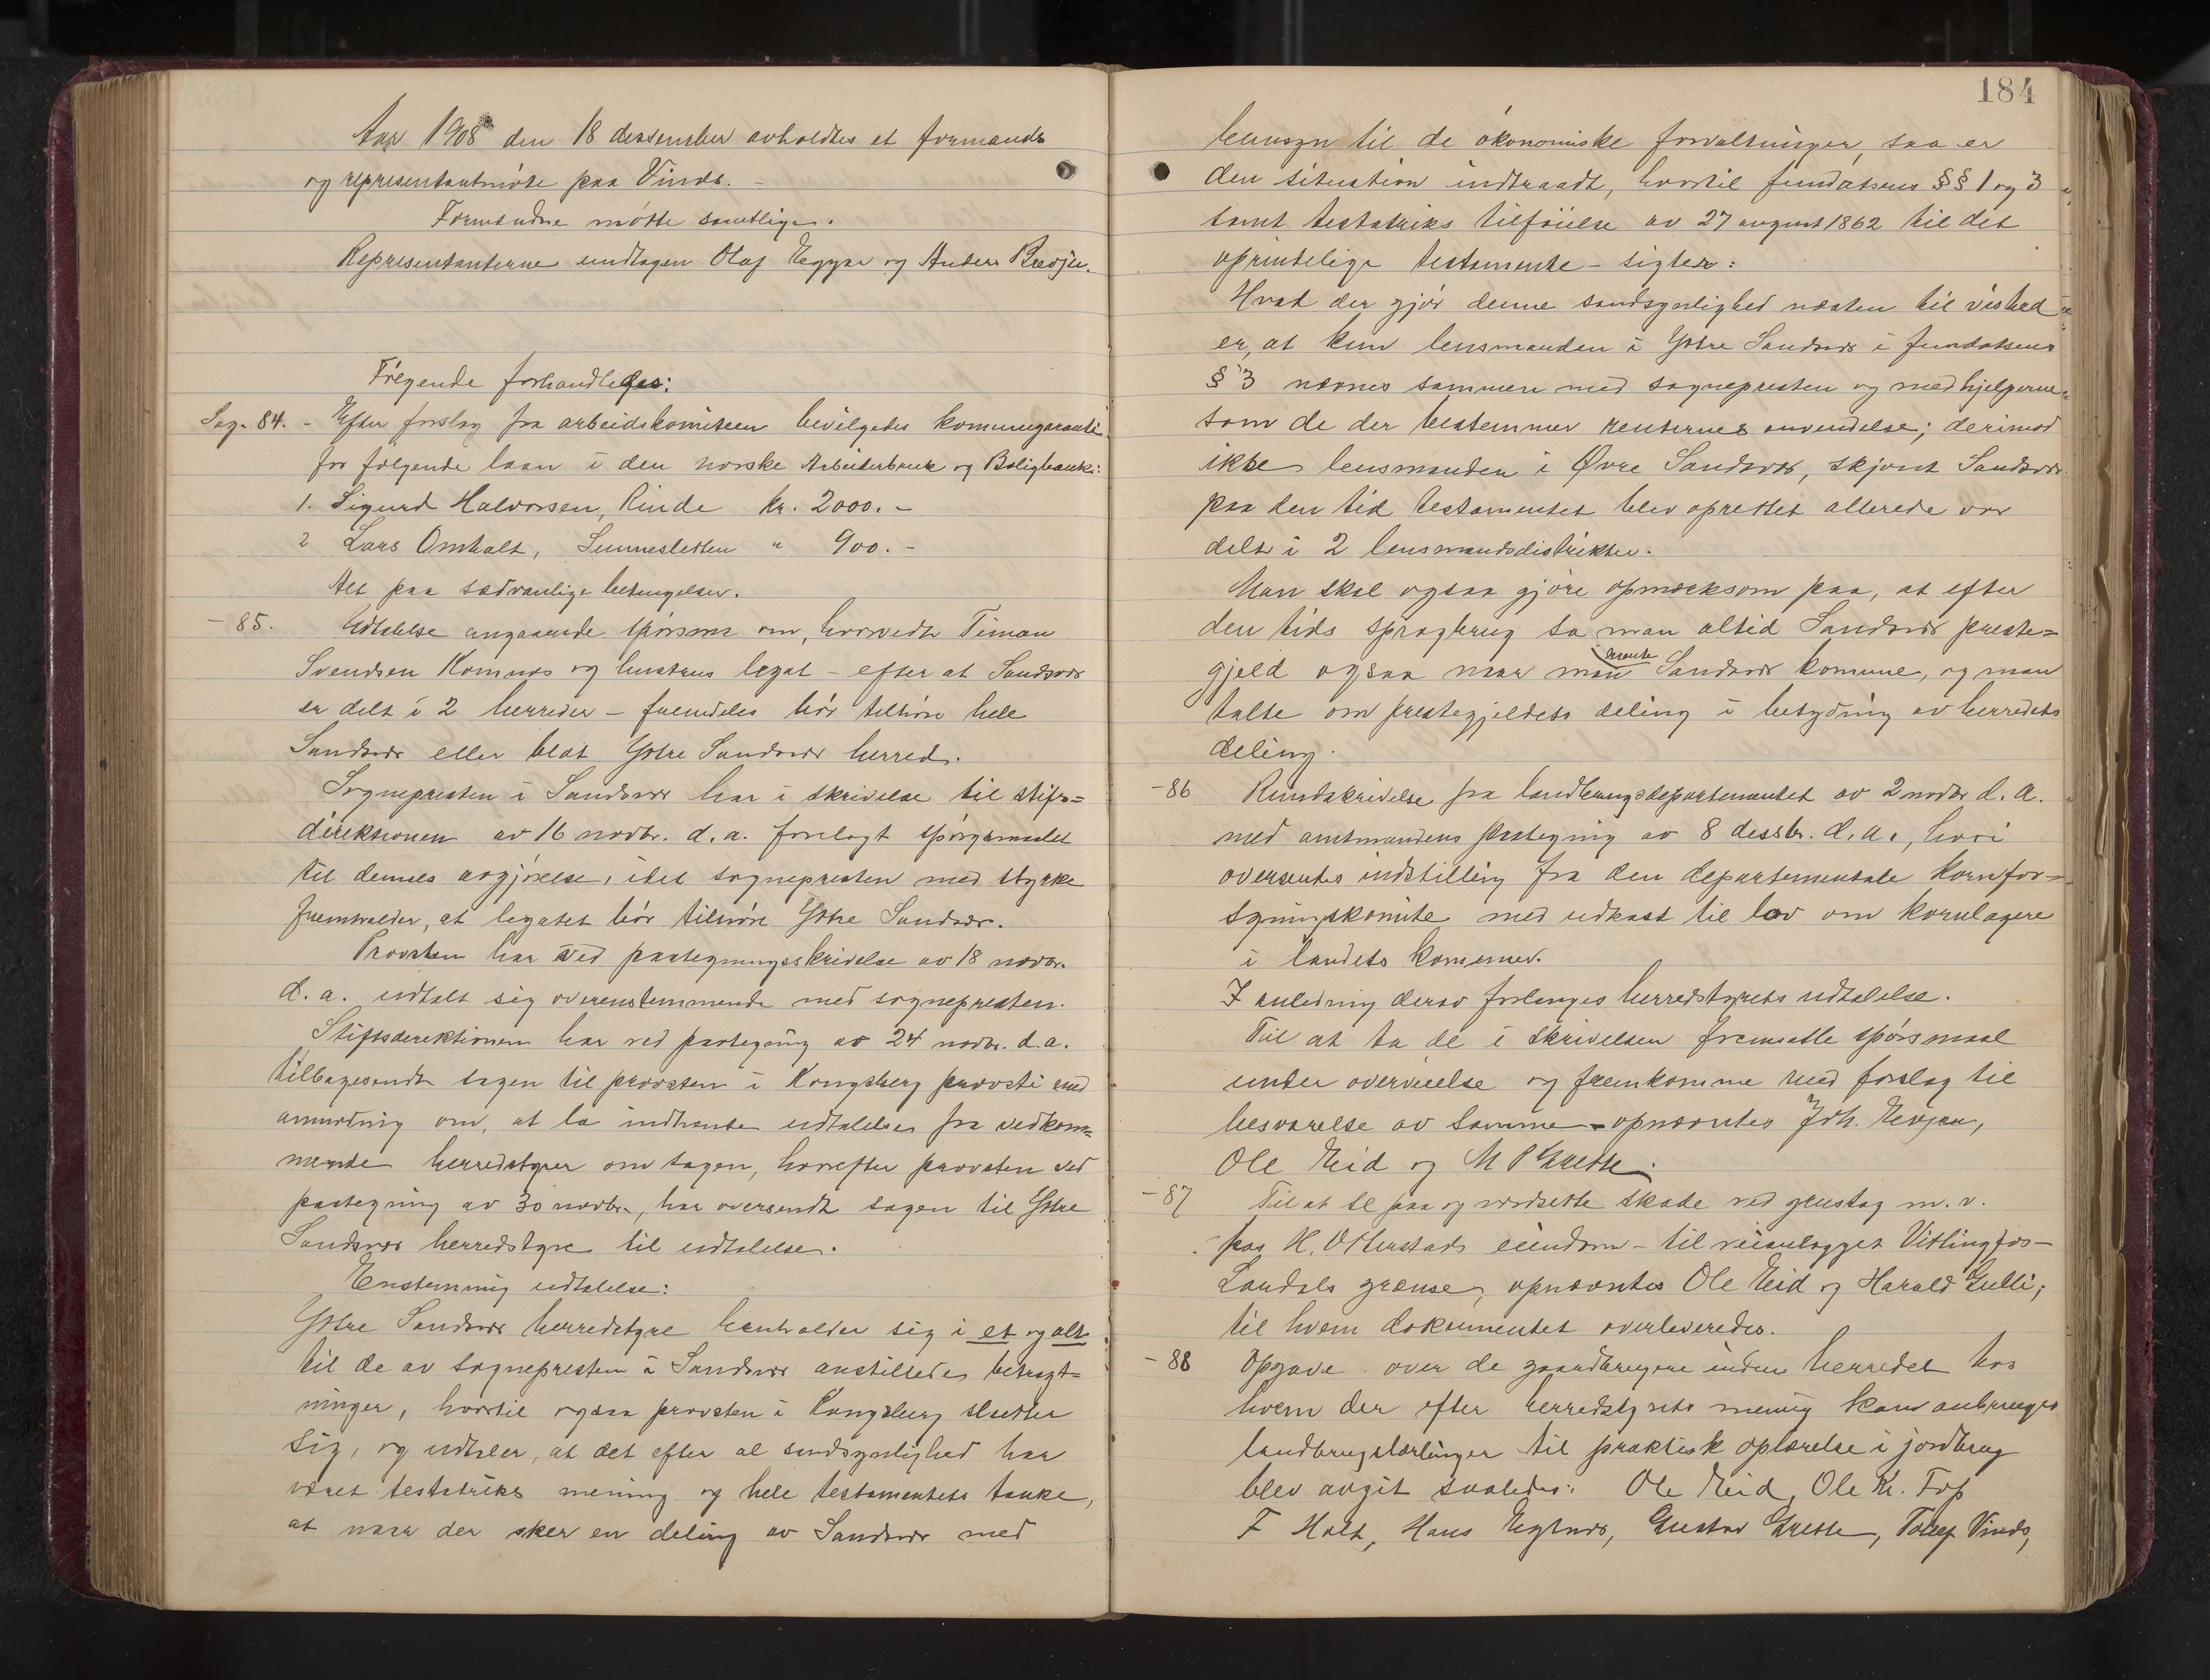 Aar 1908 den 18 dessember avholdtes et formands
og representantmöte paa Vinds. -
Formændne mötte samtlige.
Representanterne undtagen Olaf Teggar og Anders Brevje.
Fölgende forhandledes:
Sag. 84. - Efter forslag fra arbeidskomiteen bevilgedes komunegaranti
for fölgende laan i den norske Arbeiderbruk og Boligbank:
1. Sigurd Halvorsen, Rinde kr. 2000. -
2 Lars Omholt, Sunnesletten " 900. -
Alt paa sædvanlige betingelser.
- 85. Udtalelse angaaende spörsm om, hvorvidt Timan
Svendsen Komnæs og hustrus legat - efter at Sandsvær
er delt i 2 herreder - fremdeles bör tilhöre hele
Sandsvær eller blot Ytre Sandsvær herred.
Sognepresten i Sandsvær har i skrivelse til stifs=
direktionen av 16 novbr. d. a. forelagt spörgsmaalet
til dennes avgjörelse, idet sognepresten med styrke
fremholder, at legatet bör tilhöre Ytre Sandsvær.
Provsten har ved paategningsskrivelse av 18 novbr.
d. a. udtalt sig overenstemmende med sognepresten.
Stiftsdirektionen har ved paategning av 24 novbr. d. a.
tilbagesendt sagen til provsten i Kongsberg provsti med
anmodning om, at la indhente udtalelser fra vedkom=
mende herredstyrer om sagen, hvorefter provsten ved
paategning av 30 novbr., har oversendt sagen til Ytre
Sandsvær herredstyre til udtalelse.
Enstemmig udtalelse:
Ytre Sandsvær herredstyre henholder sig i et og alt
til de av sognepresten i Sandsvær anstillede betragt=
ninger, hvortil ogsaa provsten i Kongsberg slutter
sig, og udtaler, at det efter al sandsynlighed har
været testatriks mening og hele testamentets tanke,
at naar der sker en deling av Sandsvær med
184
hensyn til de ökonomiske forvaltninger, saa er
den situation indtraadt, hvortil fundatsens §§ 1 og 3
samt testatriks tilföielse av 27 august 1862 til det
oprindelige testamente - sigter:
Hvad der gjör denne sandsynlighed næsten til vished
er, at kun lensmanden i Ytre Sandsvær i fundatsens
§ 3 nævnes sammen med sognepresten og medhjelperne
som de der bestemmer renternes anvendelse; derimod
ikke lensmanden i Øvre Sandsvær, skjönt Sandsvær
paa den tid testamentet blev oprettet allerede var
delt i 2 lensmandsdistrikter.
Man skal ogsaa gjöre opmerksom paa, at efter
den tids sprogbrug sa man altid Sandsvær preste=
gjeld ogsaa naar man mente Sandsvær komune, og man
talte om prestegjeldets deling i betydning av herredets
deling.
- 86 Rundskrivelse fra landbrugsdepartementet av 2 novbr d. a.
med amtmandens paategning av 8 dessbr. d. a., hvori
oversendtes indstilling fra den departementale kornfor=
syningskomite med udkast til lov om kornlagere
i landets komuner.
I anledning derav forlanges herredstyrets udtalelse.
Til at ta de i skrivelsen fremsatte spörsmaal
under overveielse og fremkomme med forslag til
besvarelse av samme - opnævntes Joh.
Ole Eid og M P Grette.
- 87 Til at se paa og verdsette skade ved grustag m. v.
paa H. Otterstads eiendom - til veianlægget Vitlingfos -
Landals grænse, opnævntes Ole Eid og Harald Gulli;
til hvem dokumentet overleveredes.
- 88 Opgave over de gaardbrugere inden herredet hos
hvem der efter herredstyrets mening kan anbringes
landbrugslærlinger til praktisk oplærelse i jordbrug
blev avgit saaledes: Ole Eid, Ole Kr. Fop
F Holt, Hans Teglnæs, Gustav Grette, Tollef Vinds,